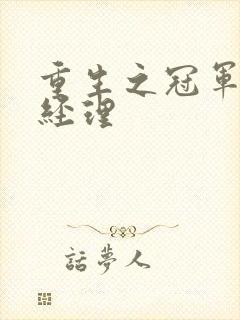 重生之冠軍
經理
話夢人